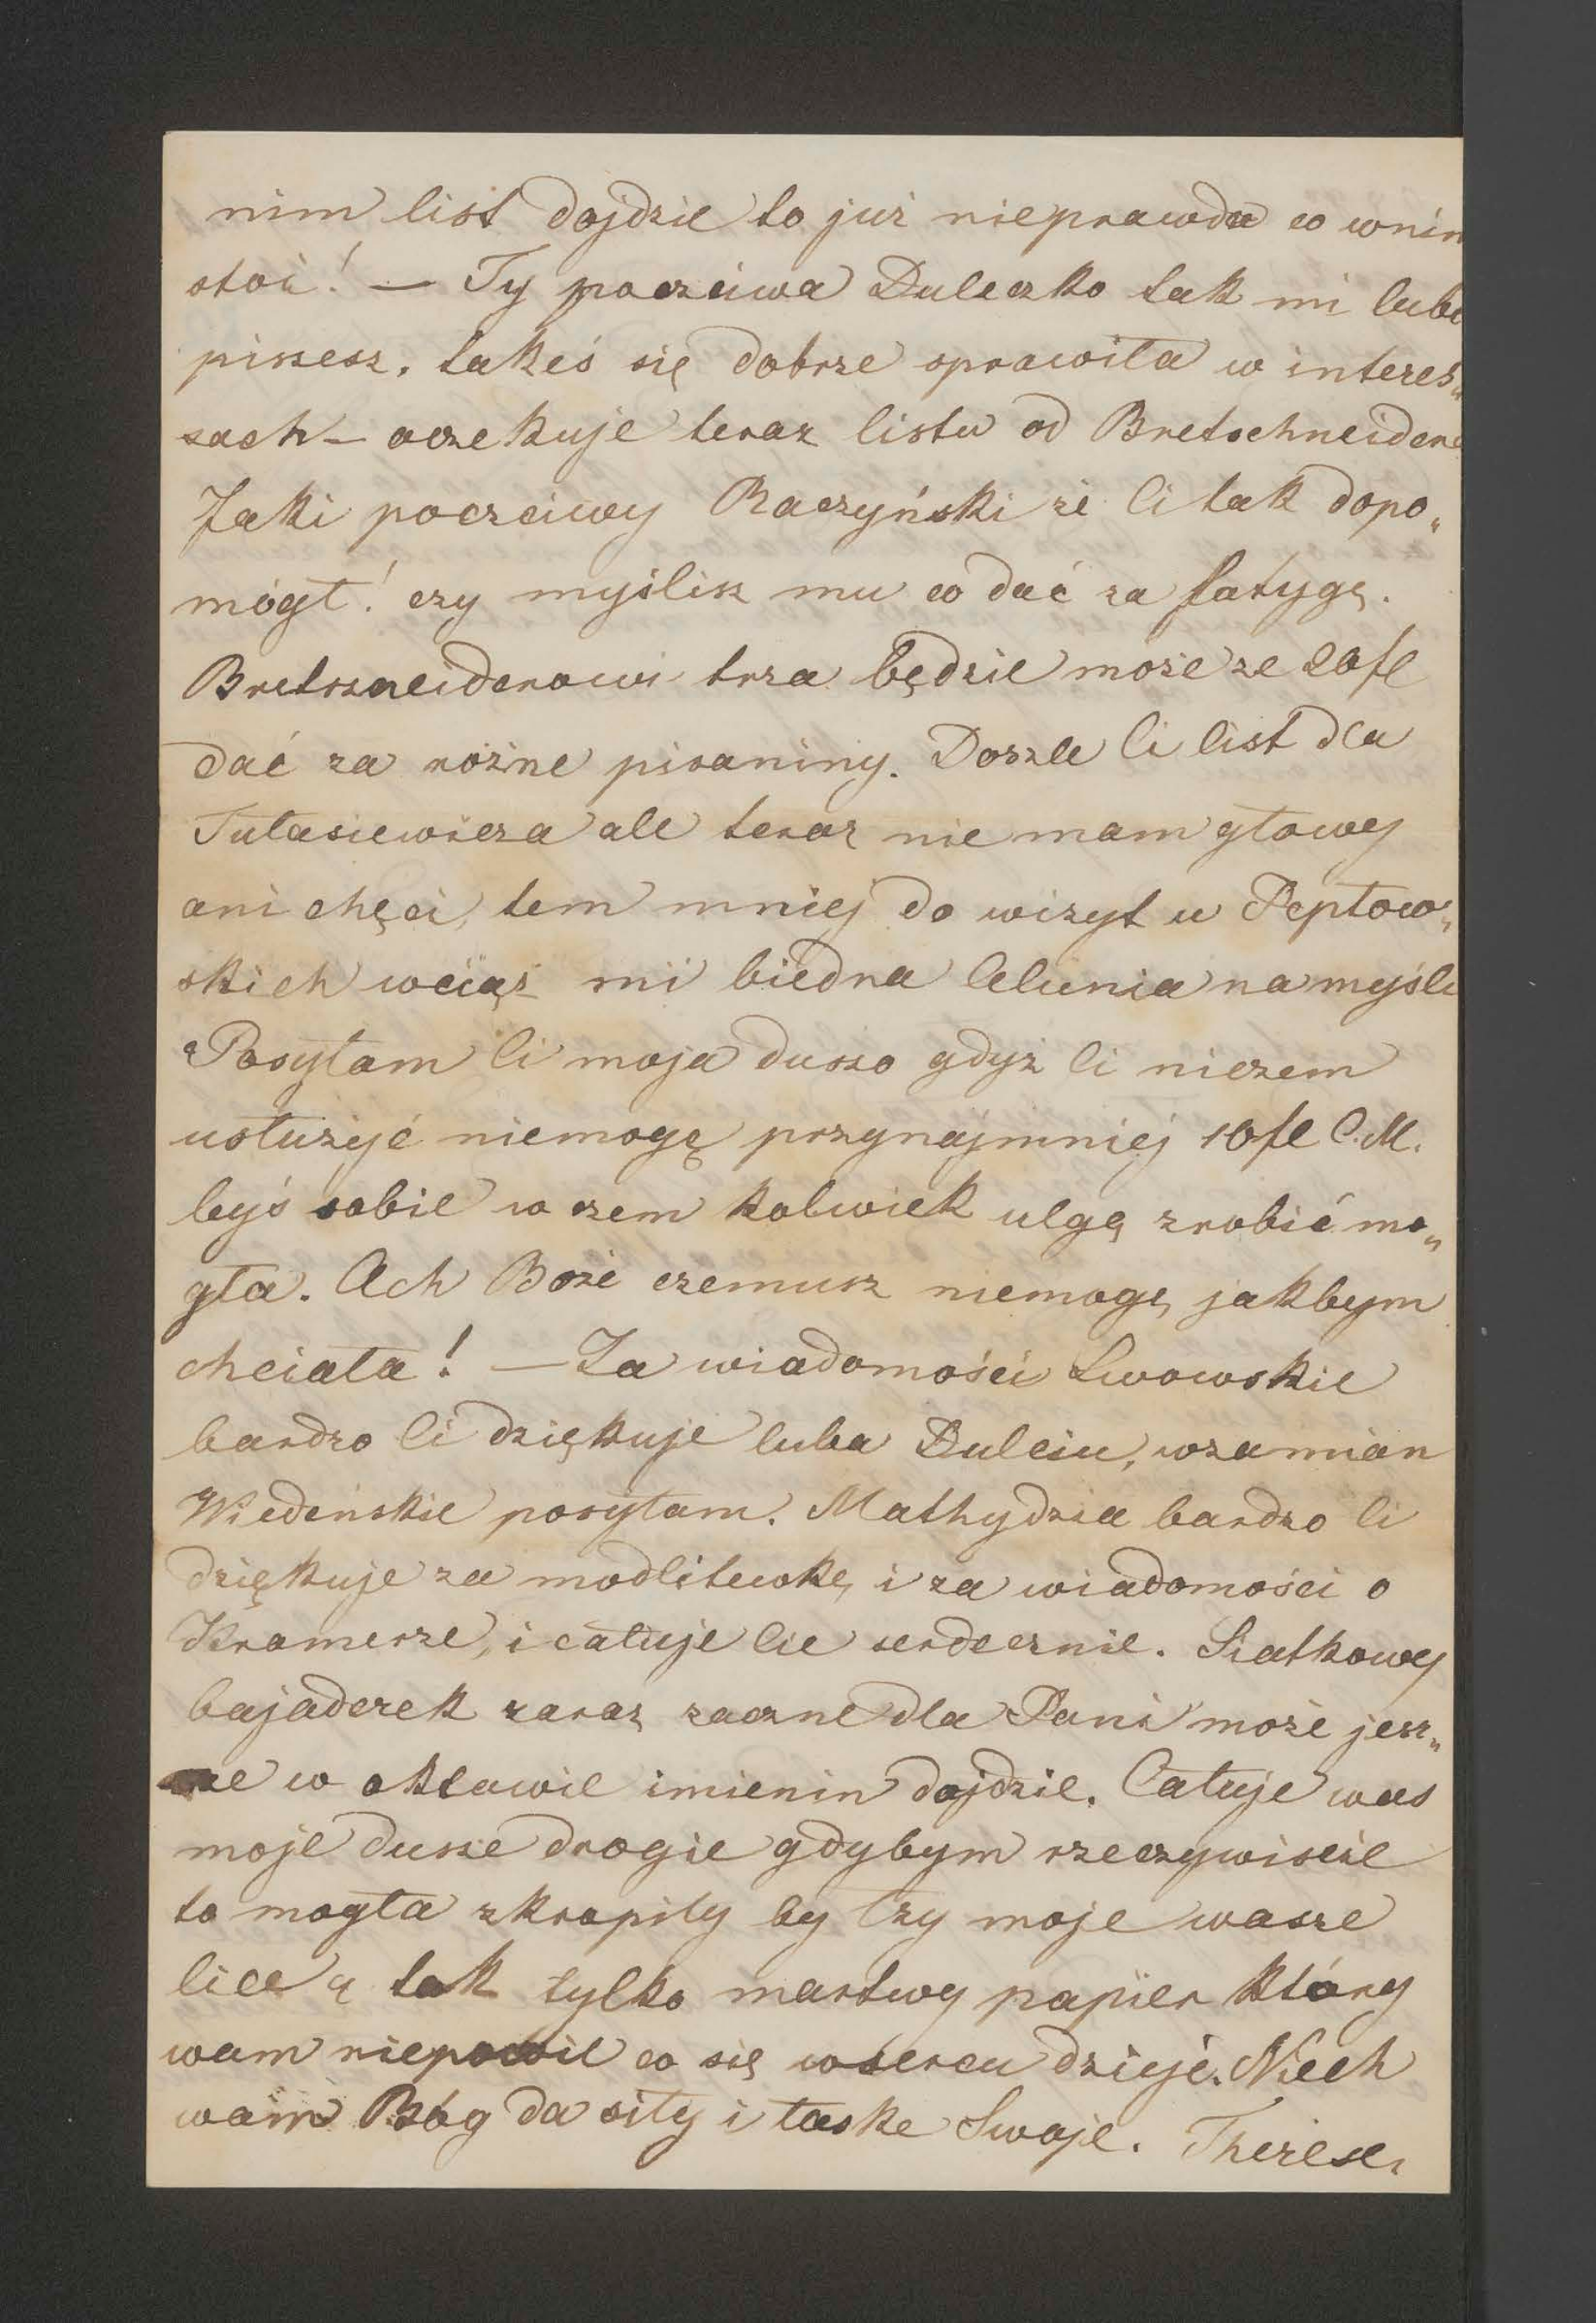 nim list dojdzie to już nieprawda co wnim
stoi! — Ty poczciwa Duleczko tak mi lubo
piszesz, takeś się dobrze sprawiła w interes„
sach — oczekuje teraz listu od Bretschneidera
Jaki poczciwy Raczyński że Ci tak dopo„
mógł! czy myślisz mu co dać za fatygę.
Bretszneiderowi trza będzie może ze 20 fl
dać za różne pisaniny. Doszle Ci list dla
Tułasiewicza ale teraz nie mam głowy
ani chęci, tem mniej do wizyt u Peptow„
skich wciąż mi biedna Celunia na myśli
Posyłam Ci moja duszo gdyż Ci niczem
usłużyć niemogę przynajmniej 10 fl C.M.
byś sobie w czem kolwiek ulgę zrobić mo„
gła. Ach Boże czemusz niemogę jakbym
chciała! — Za wiadomości Lwowskie
bardzo Ci dziękuje luba Dulciu, wzamian
Wiedeńskie posyłam. Mathydzia bardzo Ci
dziękuje za modlitewkę i za wiadomości o
Kramerze, i całuje Cie serdecznie. Siatkowy
bajaderek zaraz zaczne dla Pani może jesz„
cze w oktawie imienin dojdzie. Całuje was
moje dusze drogie gdybym rzeczywiście
to mogła skropiły by łzy moje wasze
lice a tak tylko martwy papier który
wam niepowie co się wsercu dzieje. Niech
wam Bóg da siły i łaske Swoje. Therese.